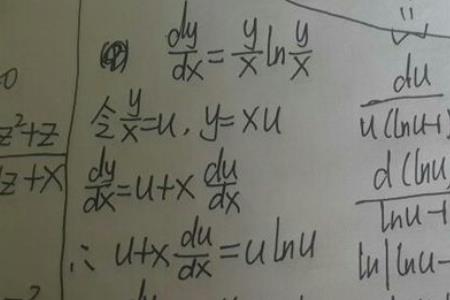 (4) dy/dx = y/x ln y/x
令 y/x = u, y = xu
dy/dx = u + x du/dx
∴ u + x du/dx = u ln u
z²+z
z+x
du
u(lnu-1
d(lnu
lnu-1
ln|lnu-